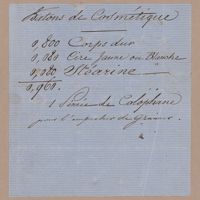 Bâtons de Cosmétique
0,800 Corps dur
0,080 Cire Jaune ou Blanche
0,080 Stéarine
0,960.
1 Pincée de Colophane
pour l'empêcher de